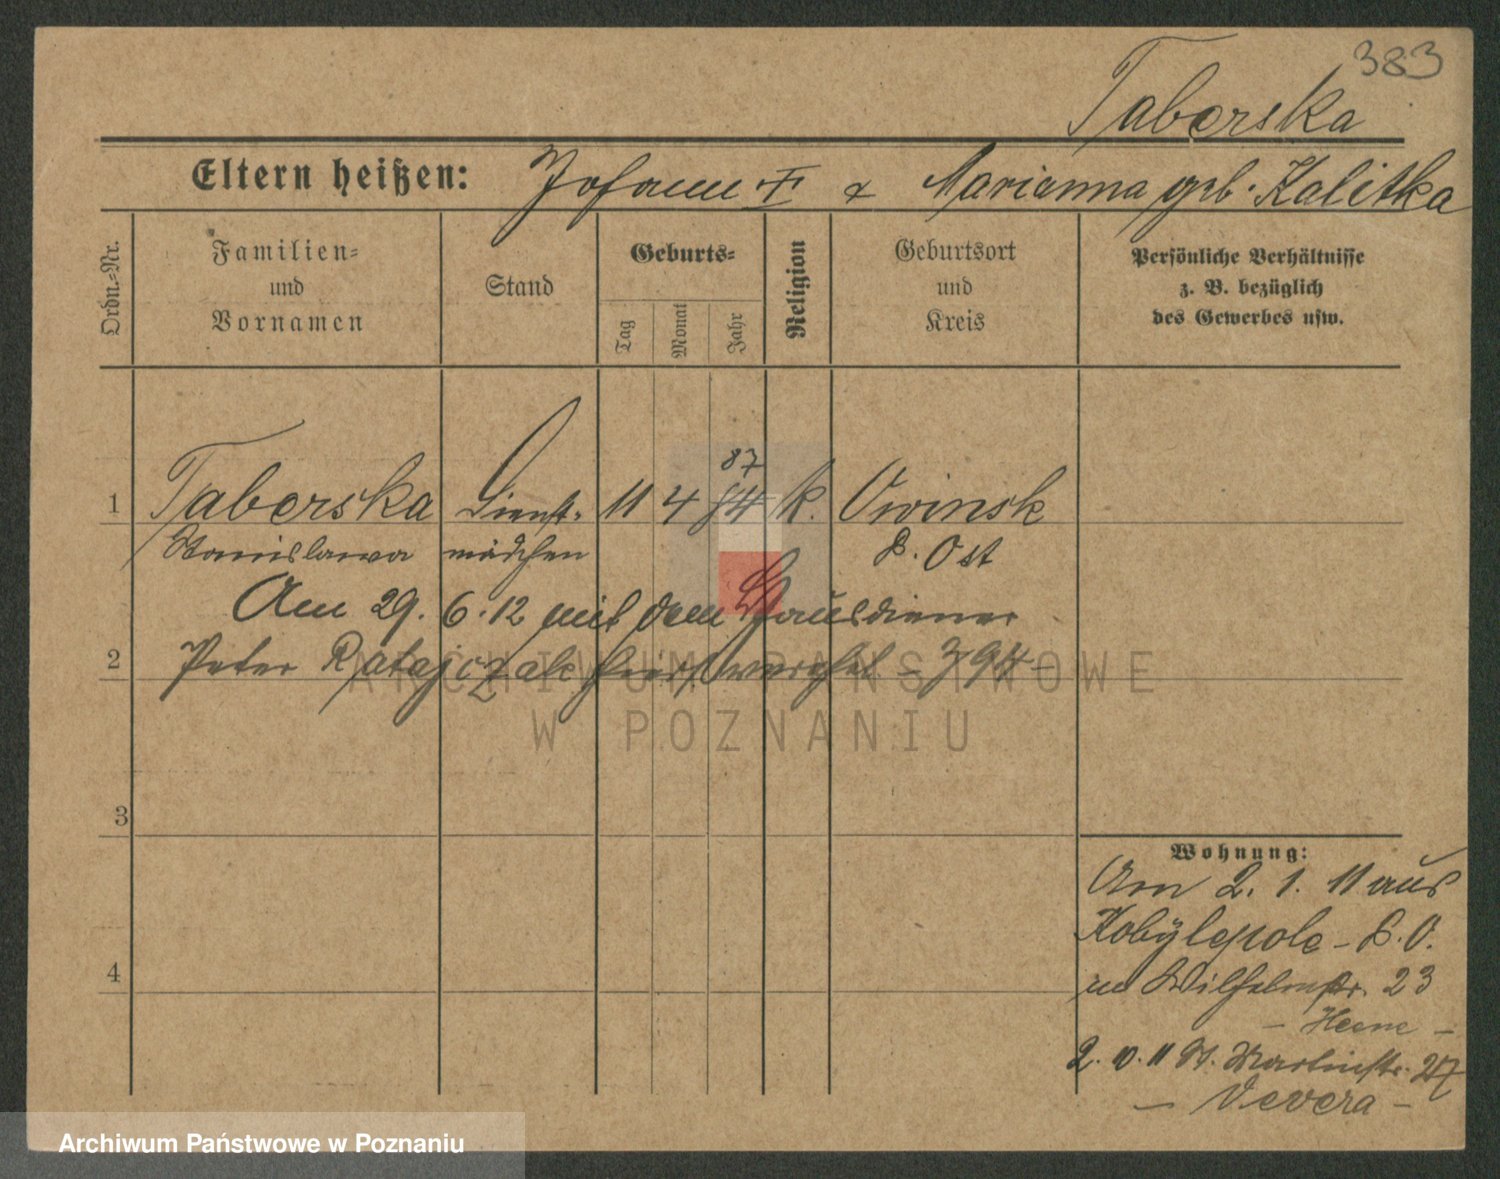 383
Taberska
Eltern heißen: Johann † & Marianna geb. Kalitka
Ordn.=Nr.
Familien= und Vornamen
Stand
Geburts=
Tag
Monat
Jahr
Religion
Geburtsort und Kreis
Persönliche Verhältnisse z. B. bezüglich des Gewerbes usw.
87
1 Taberska Dienst- 11 4 84 k. Owinsk
Stanislawa mädchen P. Ost
Am 29. 6. 12 mit dem Hausdiener
2 Peter Ratajczak hier verehel. - 394 -
3
4
Wohnung:
Am 2. 1. 11 aus
Kobylepole - P. O.
n Wilhelmstr. 23
- Heene -
2. 10. 11 St. Martinstr. 27
- Vevera -
ARCHIWUM PAŃSTWOWE
W POZNANIU
Archiwum Państwowe w Poznaniu